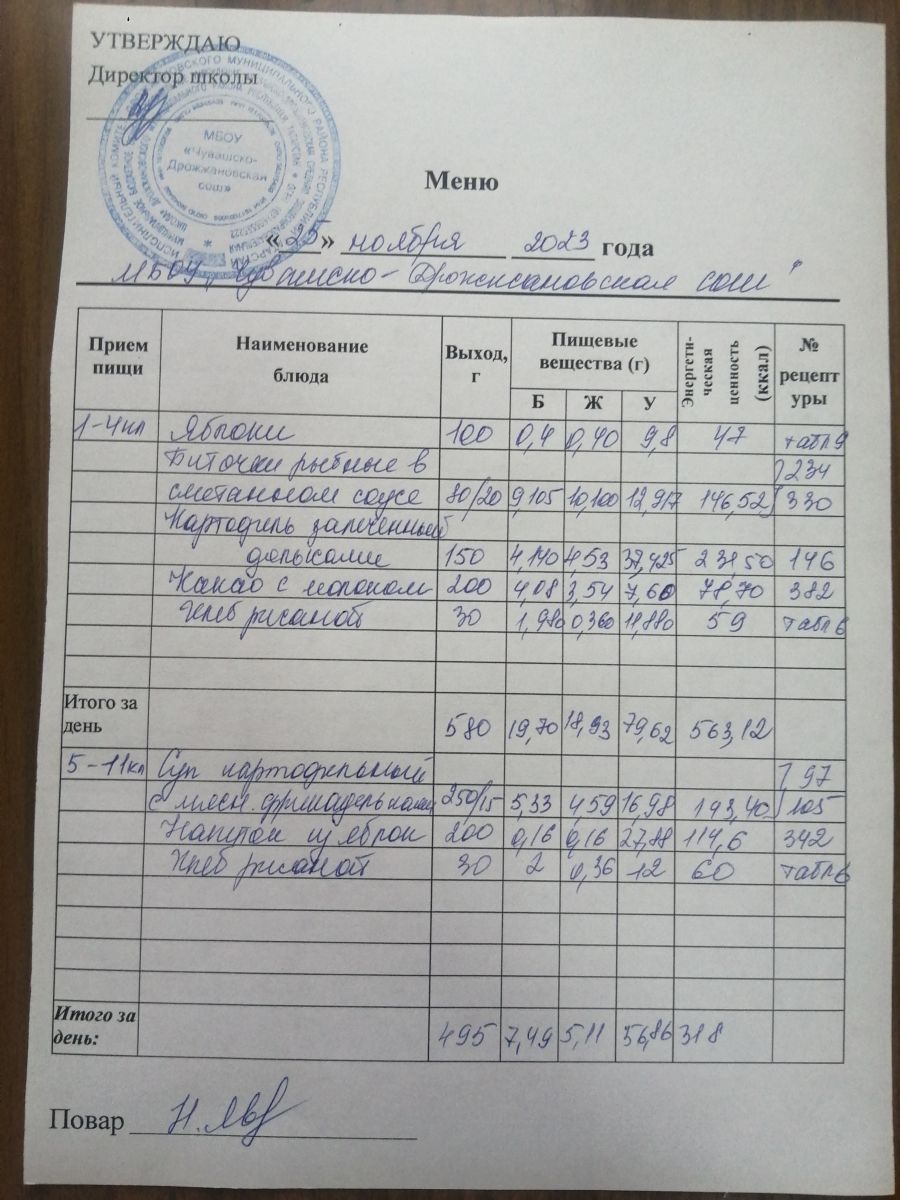 УТВЕРЖДАЮ
Директор школы
МБОУ
«Чувашско-
Дрожжановская
сош»
Меню
«25» ноября 2023 года
МБОУ "Чувашско-Дрожжановская сош"
Прием пищи Наименование блюда Выход, г Пищевые вещества (г) Энергети-ческая ценность (ккал) № рецептуры
Б Ж У
1-4кл Яблоки 100 0,4 0,40 9,8 47 табл 9
Биточки рыбные в 234
сметанном соусе 80/20 9,105 10,100 12,917 146,52 330
Картофель запеченный
дольками 150 4,140 4,53 37,425 231,50 146
Какао с молоком 200 4,08 3,54 7,60 78,70 382
Хлеб ржаной 30 1,980 0,360 11,880 59 табл 6
Итого за день 580 19,70 18,93 79,62 563,12
5-11кл Суп картофельный 97
с мясн. фрикадельками 250/15 5,33 4,59 16,98 143,40 105
Напиток из яблок 200 0,16 0,16 27,88 114,6 342
Хлеб ржаной 30 2 0,36 12 60 табл 6
Итого за день: 495 7,49 5,11 56,86 318
Повар